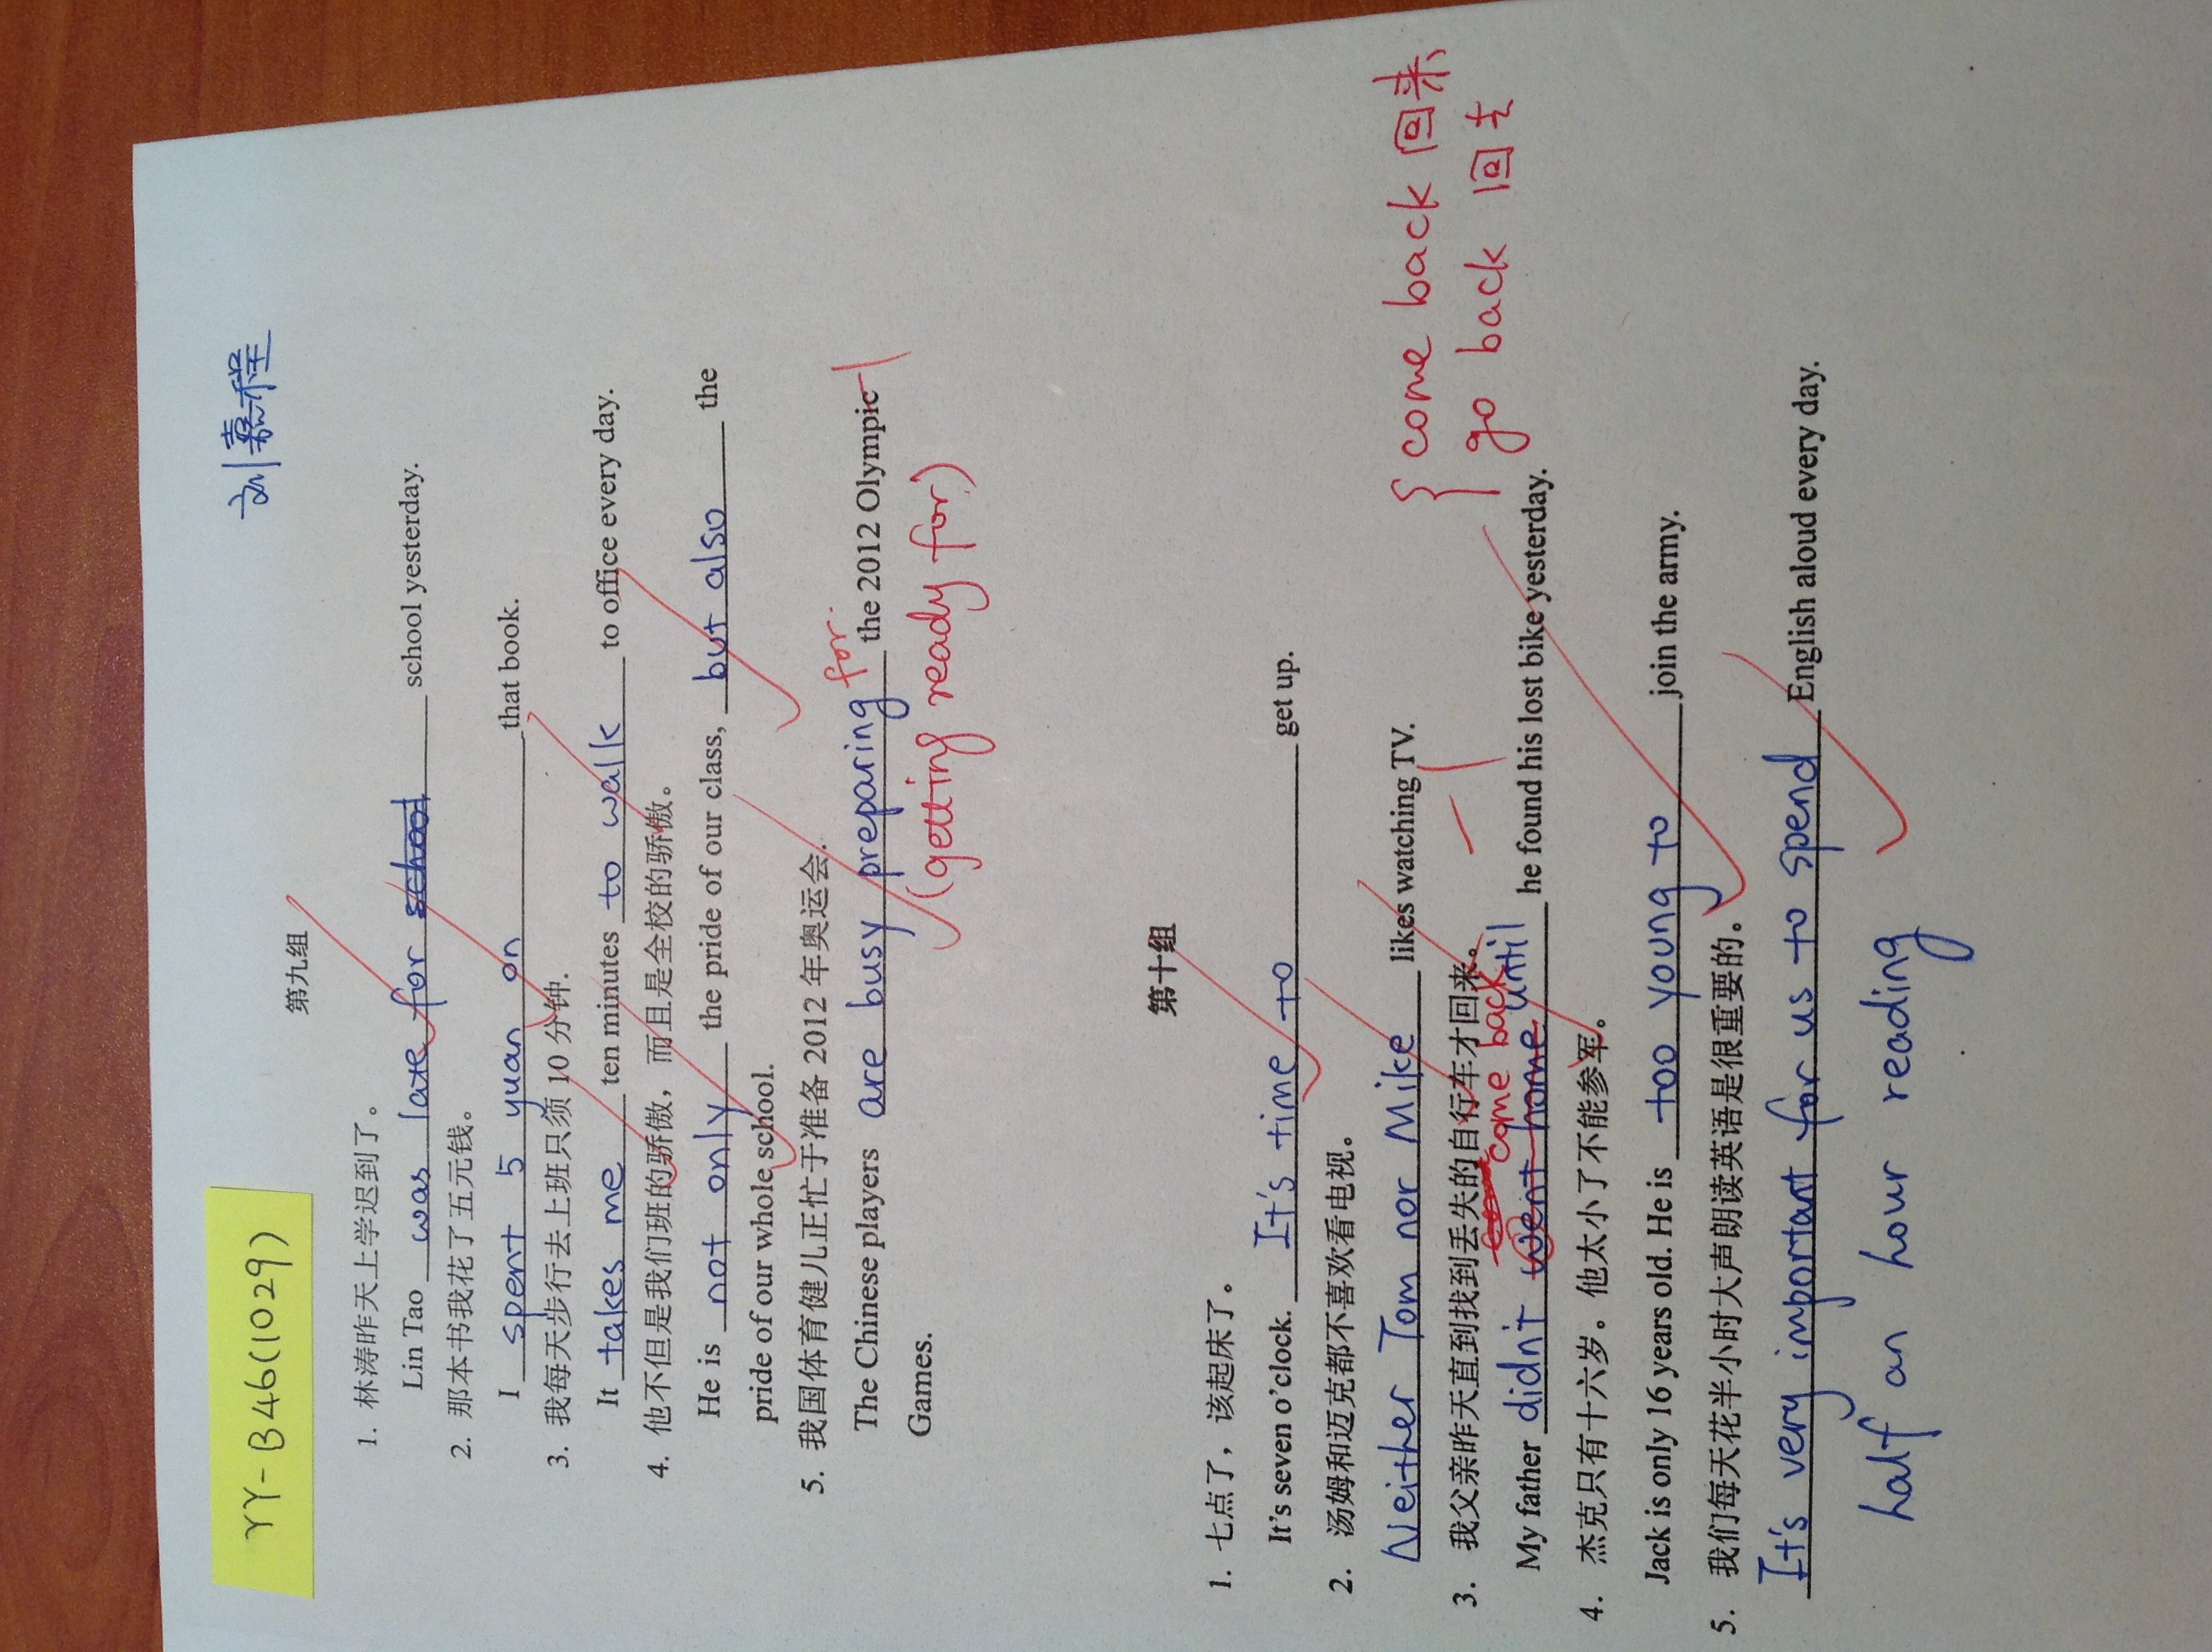 YY-B46(1029)
刘嘉程
第九组
1. 林涛昨天上学迟到了。
Lin Tao was late for school school yesterday.
2. 那本书我花了五元钱。
I spent 5 yuan on that book.
3. 我每天步行去上班只须 10 分钟.
It takes me ten minutes to walk to office every day.
4. 他不但是我们班的骄傲，而且是全校的骄傲。
He is not only the pride of our class, but also the
pride of our whole school.
5. 我国体育健儿正忙于准备 2012 年奥运会.
The Chinese players are busy preparing for. the 2012 Olympic -1
Games. (getting ready for)
第十组
1. 七点了，该起床了。
It's seven o'clock. It's time to get up.
2. 汤姆和迈克都不喜欢看电视。
Neither Tom nor Mike likes watching TV.
come back 回来
3. 我父亲昨天直到找到丢失的自行车才回来。 -1
go back 回去
come come back
My father didn't went home until he found his lost bike yesterday.
4. 杰克只有十六岁。他太小了不能参军。
Jack is only 16 years old. He is too young to join the army.
5. 我们每天花半小时大声朗读英语是很重要的。
It's very important for us to spend English aloud every day.
half an hour reading